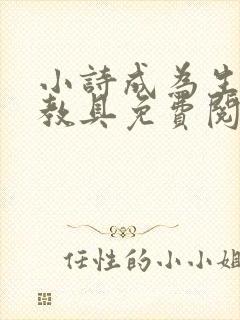 小詩成為生
教具免費閱
任性的小小姐